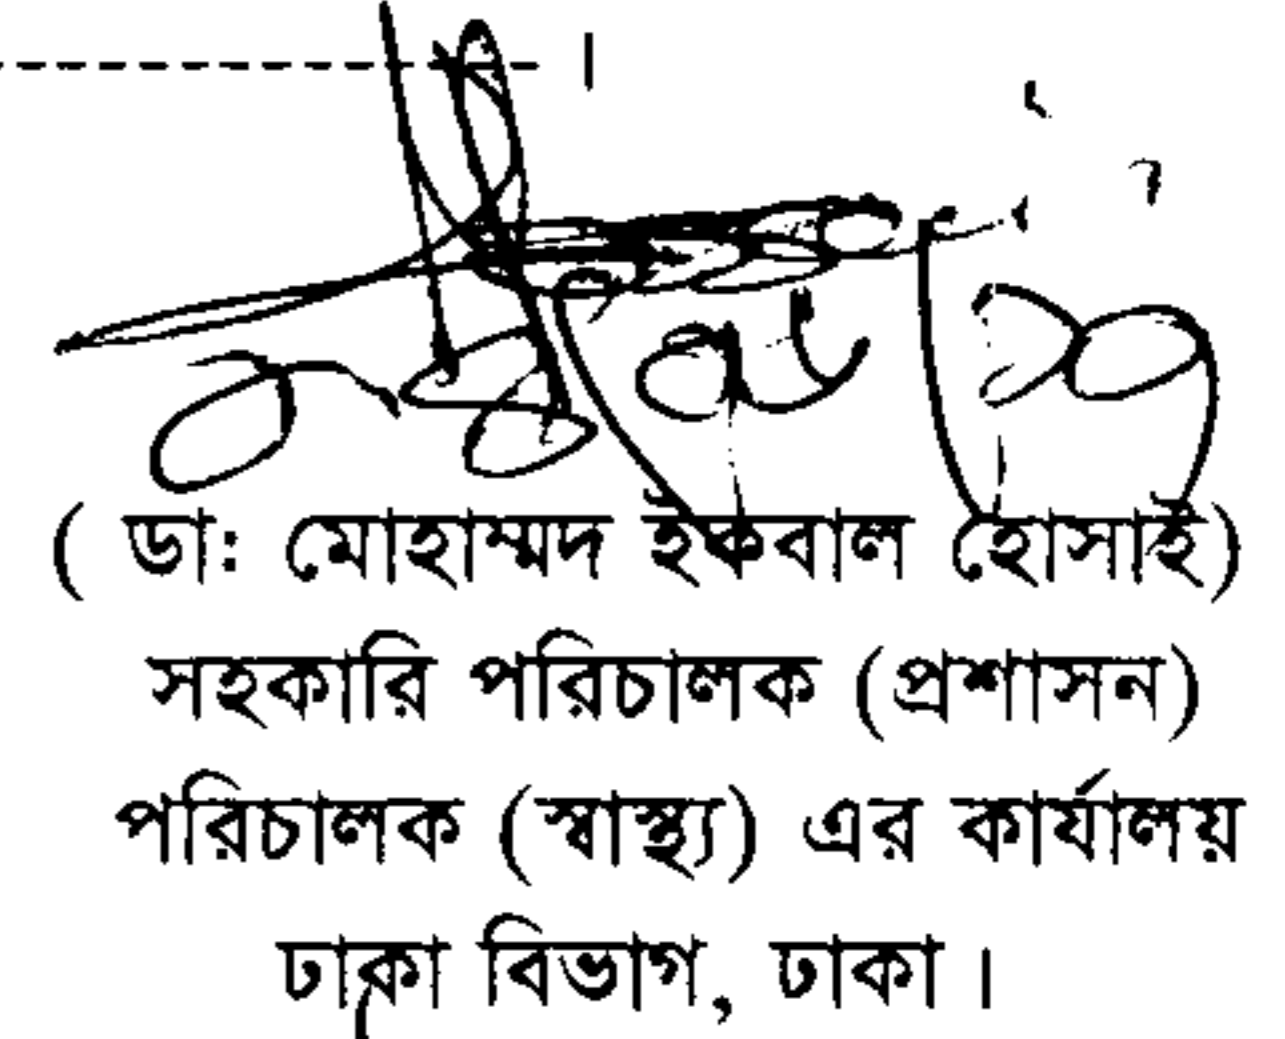 ( ডা: মোহাম্মদ ইকবাল হোসাই)
সহকারি পরিচালক (প্রশাসন)
পরিচালক (স্বাস্থ্য) এর কার্যালয়
ঢাকা বিভাগ, ঢাকা ।